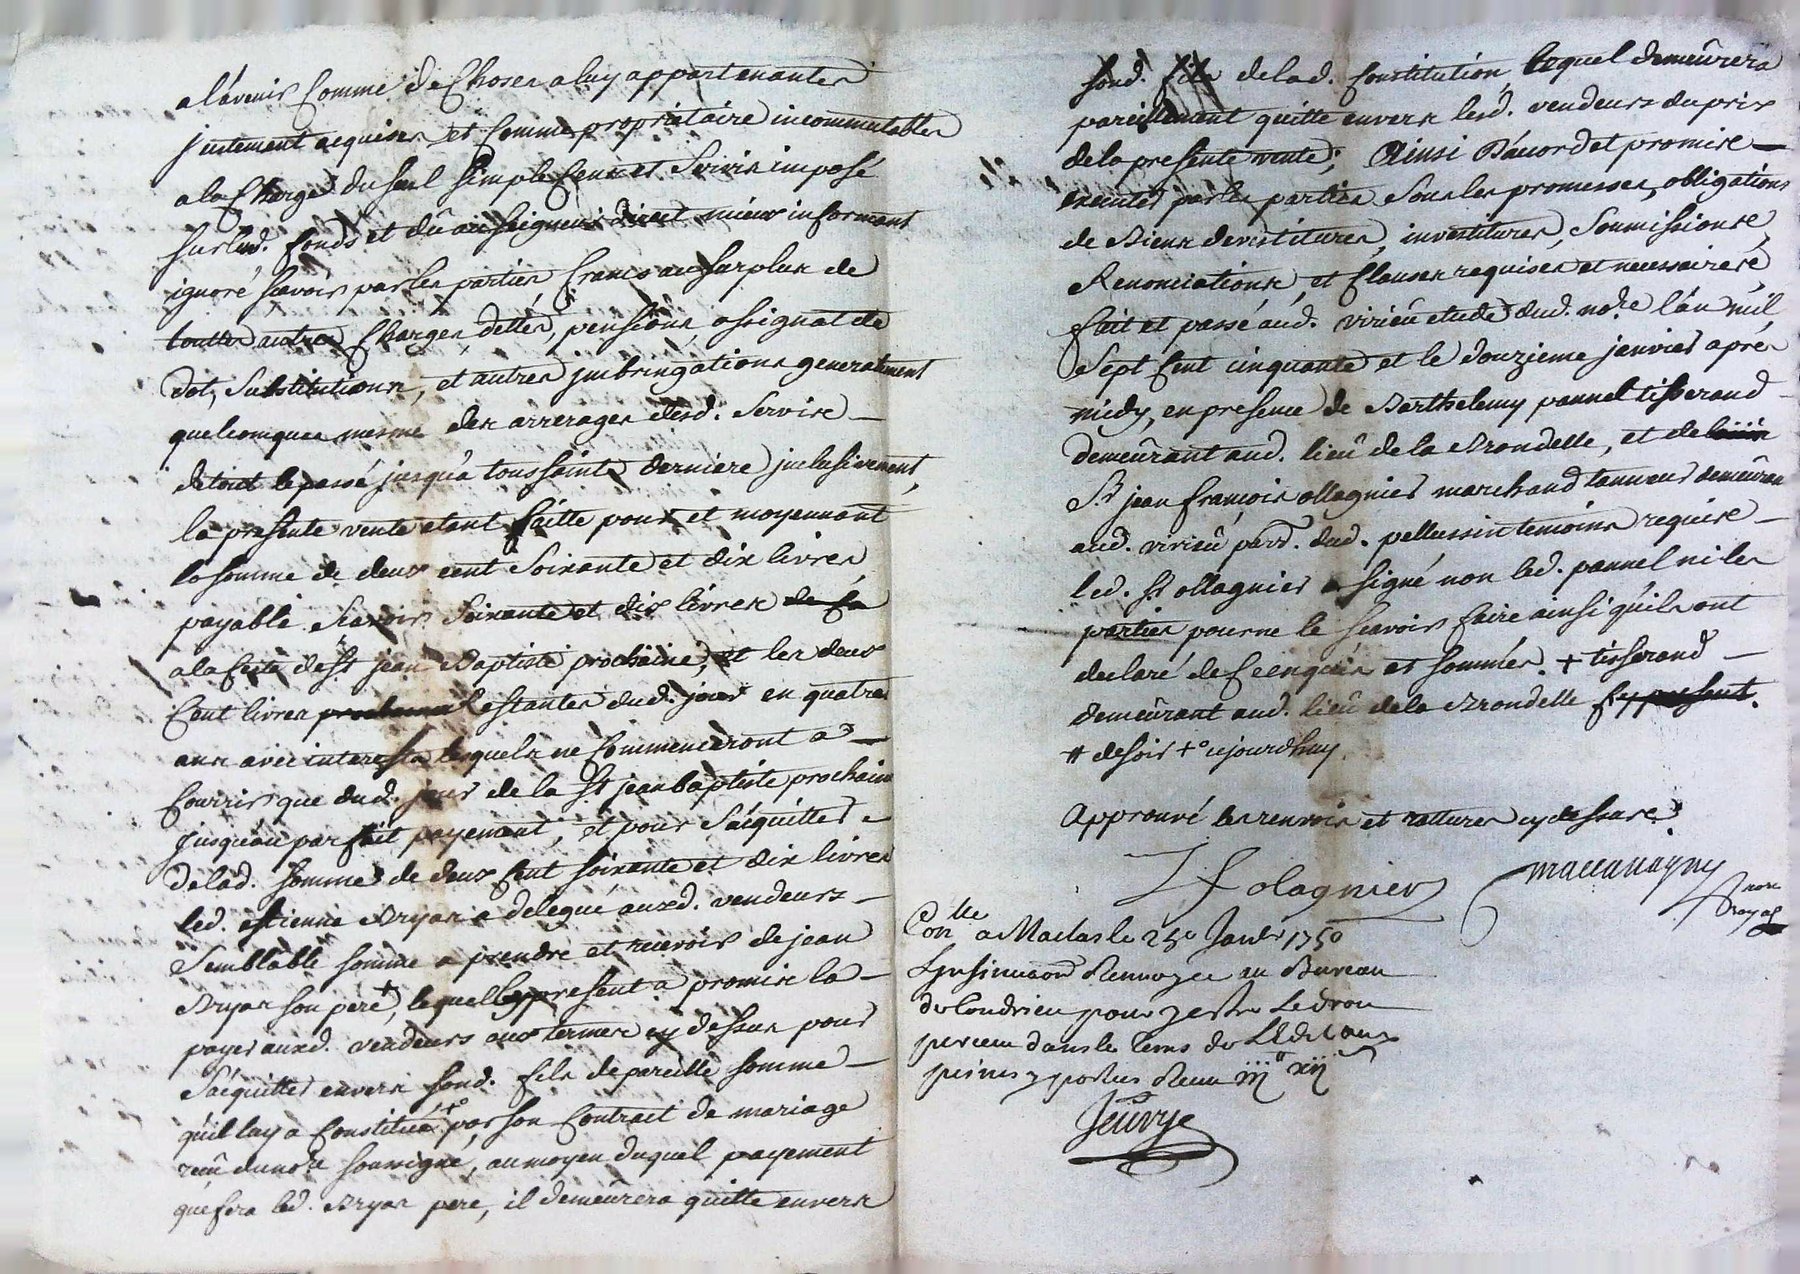 a l'avenir Comme de Choses a luy appartenantes
justement acquises et Comme proprietaire incommutables
a la Charge du seul simple Cens et Servis imposé
sur lesd. fonds et dû au seigneur direct mieux informant
ignoré sçavoir par les parties francs au surplus de
touttes autres Charges, dettes, pensions, assignat de
dot, Substitutions, et autres imbringations generalement
quelconques mesme des arrerages desd. Servise
de tout le passé jusqu'a toussaints derniere inclusivement,
la presente vente etant faitte pour et moyennant
la somme de deux cent Soixante et dix livres
payable Scavoir Soixante et dix livres de ça
a la feste de St jean Baptiste prochaine, et les deux
Cent livres restantes dud. jour en quatre
ans avec interests lesquels ne Commenceront a
Courrir que dud. jour de la St jean baptiste prochaine
jusqu'au parfait payement, et pour S'aiquitter
de lad. somme de deux Cent soixante et dix livres
led. estienne Bryas a delegué auxd. vendeurs
Semblable somme a prendre et recevoir de jean
Bryas son pere +, lequel cy present a promis la
payer auxd. vendeurs aux termes cy dessus pour
S'aiquitter envers sond. fils de pareille somme
qu'il luy a Constitué +° par son Contrait de mariage
reçû dud nore soussigné, au moyen duquel payement
que fera led. Bryas pere, il demeûrera quitte envers
sond. fils de lad. Constitution, lequel demeûrera
pareillement quitte envers lesd. vendeurs du prix
de la presente vente; Ainsi d'acord et promis
executer par les parties Sous les promesses, obligations
de Biens devestitures, investitures, Soumissions,
Renonciations, et Clauses requises et necessaires
fait et passé aud. virieû etude dud. nore l'an mil
Sept Cent cinquante et le douzieme janvier aprés
midy, en presence de Barthelemy pannel tisserand
demeûrant aud. lieû de la Brondelle, et de
Sr jean françois ollagnier marchand tanneur demeûran
aud. virieû parr. dud. pellussin temoins requis
led. Sr ollagnier a signé non led. pannel ni les
parties pour ne le sçavoir faire ainsi qu'ils ont
declaré de Ce enquis et sommés. + tisserand
demeûrant aud. lieû de la Brondelle cy present.
# de soir +° cejourdhuy
Approuvé les renvois et rattures cy dessus
J f olagnier
nore
royal
Conlle a Maclas le 25e Janvr 1750
Linsinuaon Renvoyée au Bureau
de Condrieu pour y estre Le droit
perceu dans le tems de
peines y portées Receu